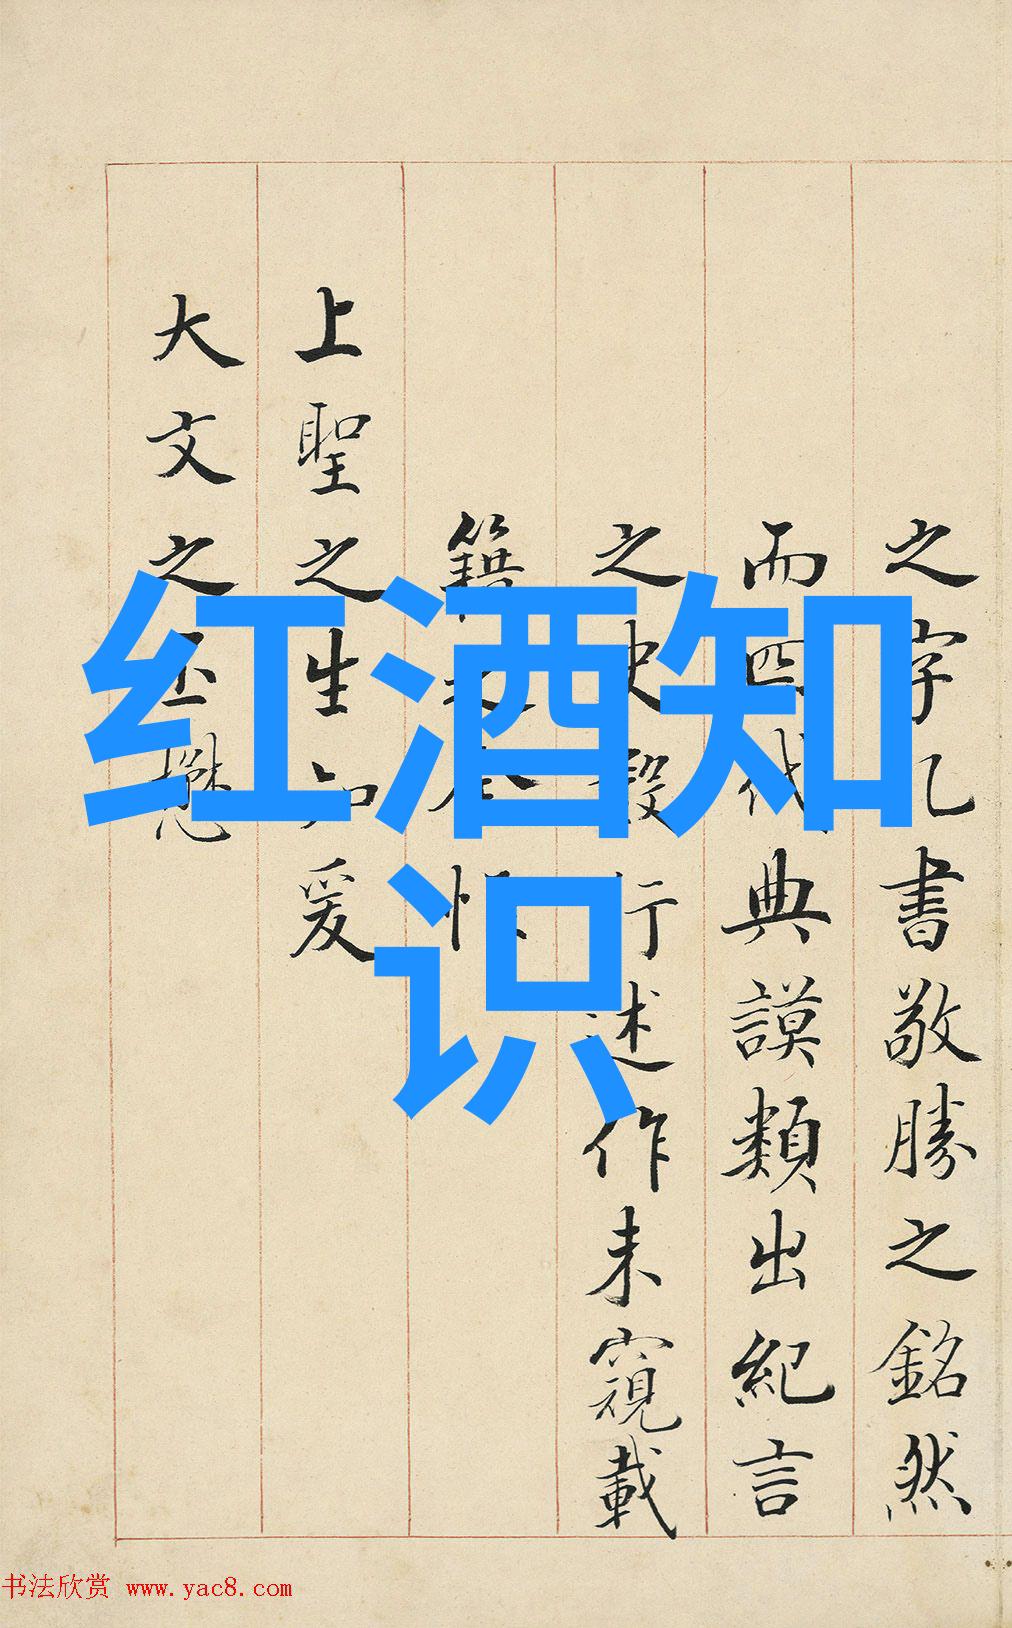 红酒知
识
之字几書敬勝之銘然
而四代典謨類出紀言
之史行述作未窺載
籍
上聖之生知爰
大文之丕懋
书法欣赏 www.yac8.com